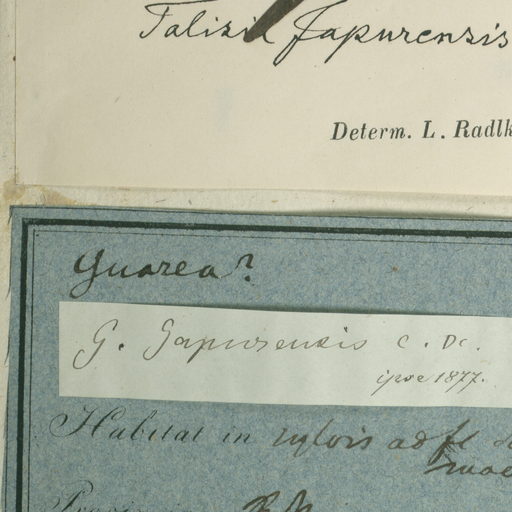 Talisia Japurensis
Determ. L. Radlk
Guarea?
G. Japurensis C. Dc.
ipse 1877.
Habitat in sylvis ad fl